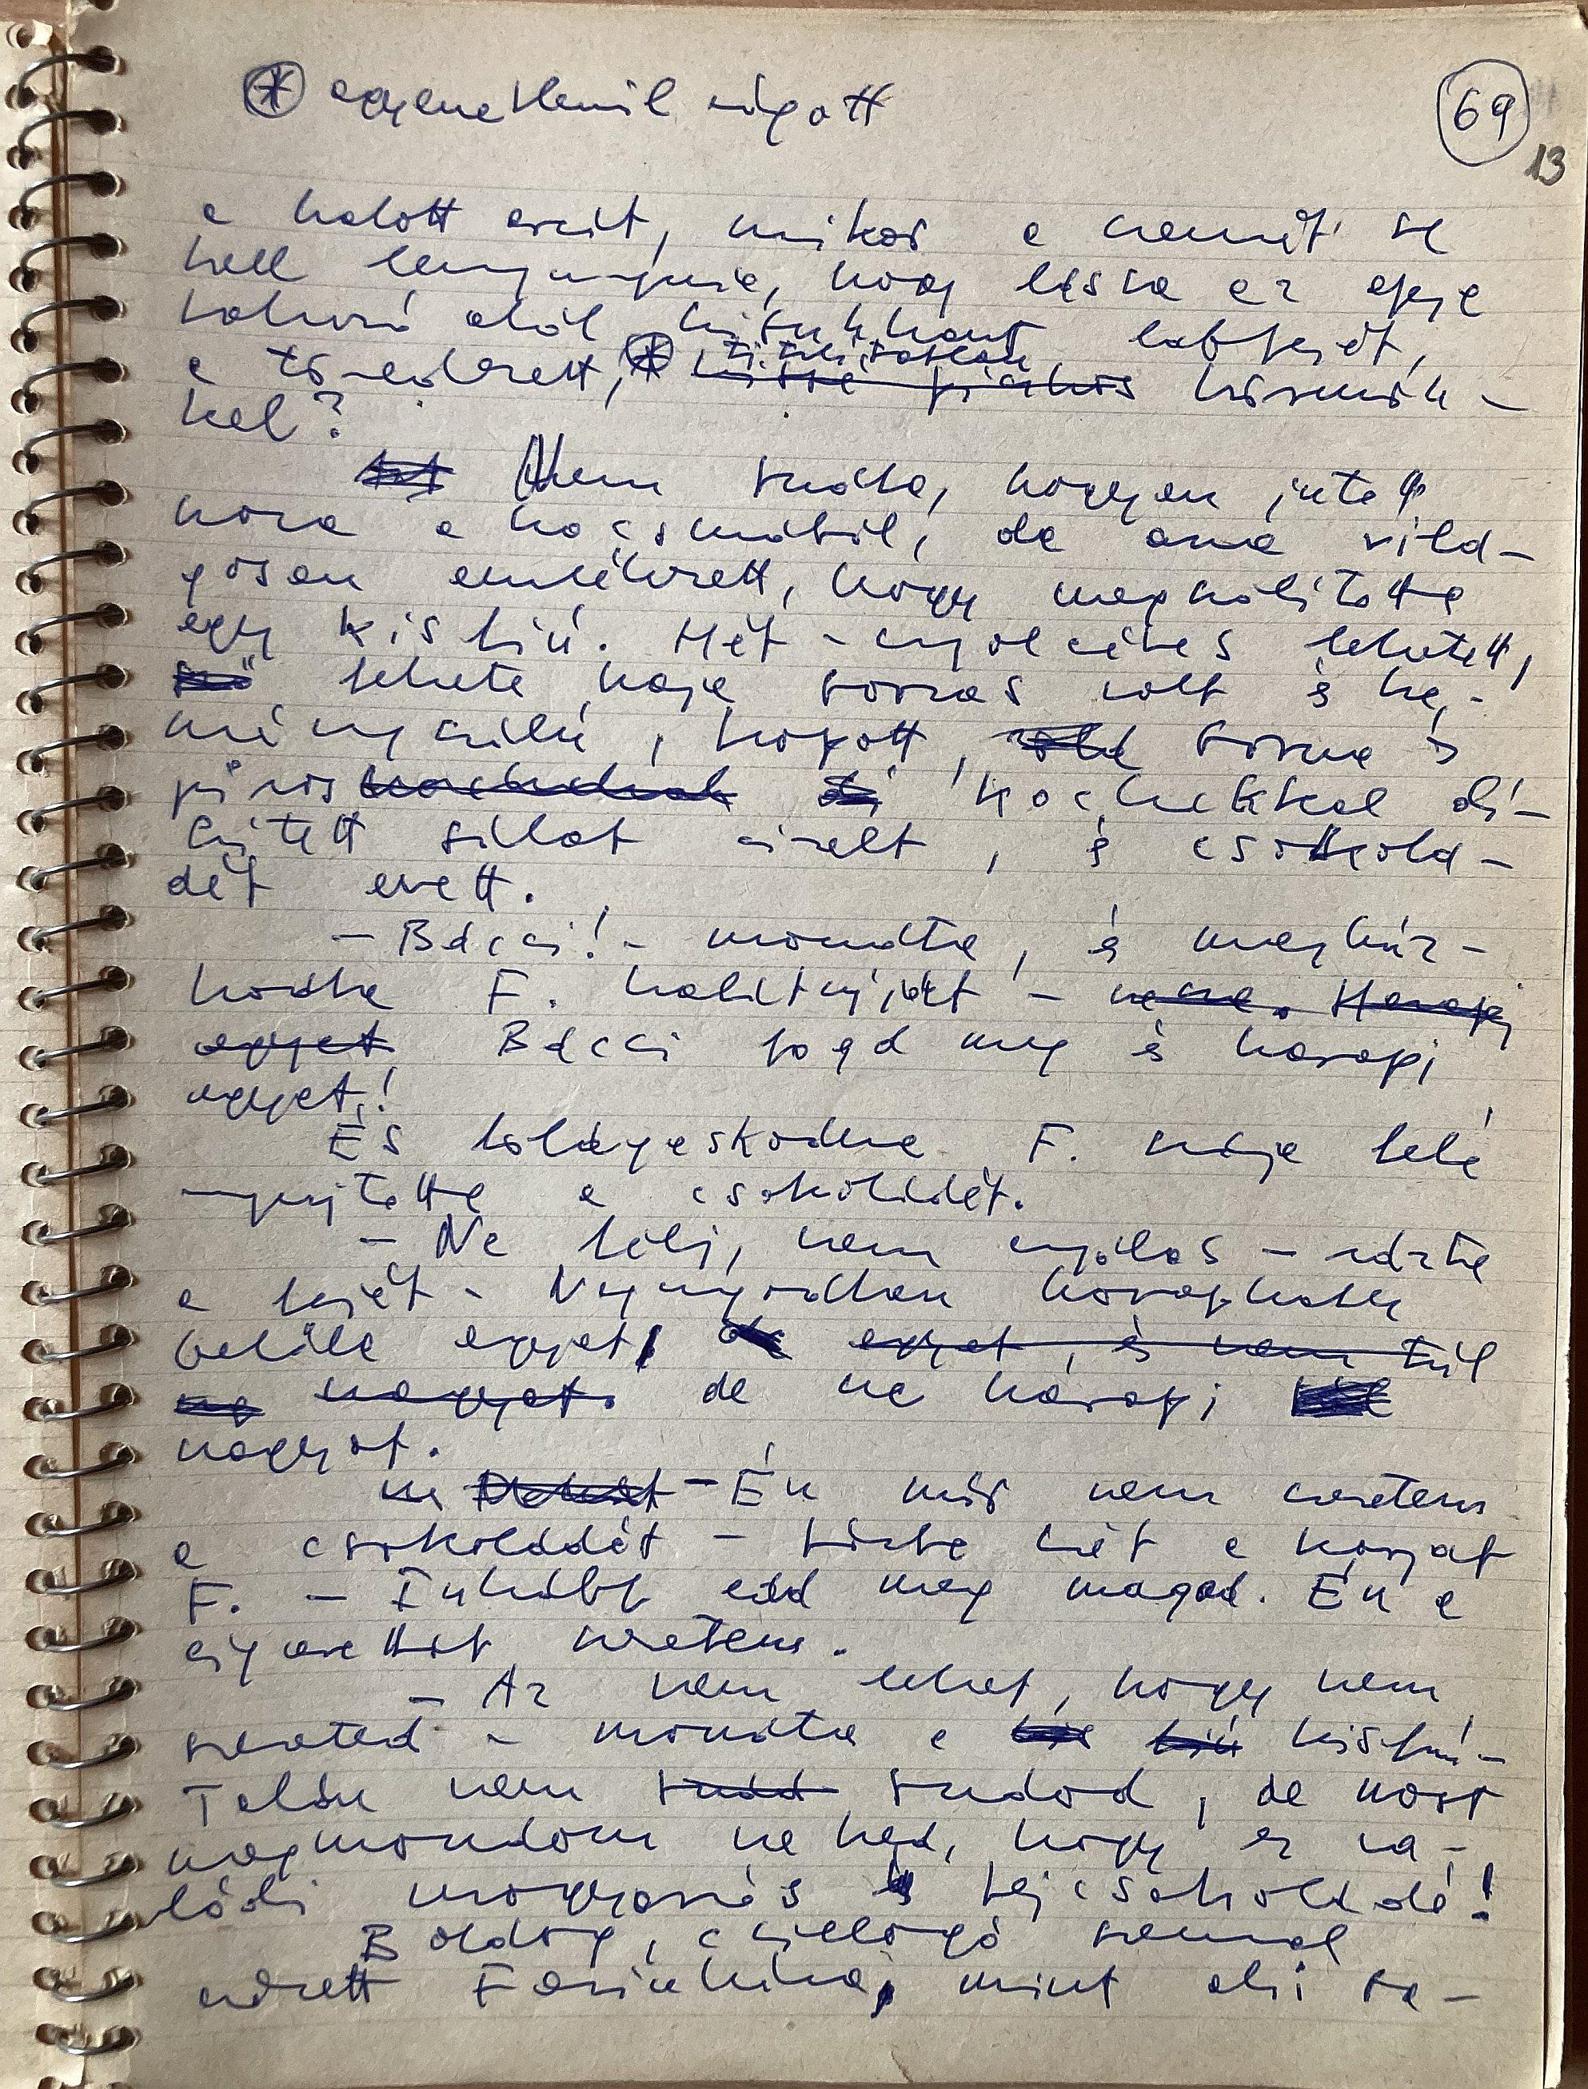 ⊛ egyenetlenül vágott
69
13
a halott arcát, mikor a nemét se
kell lennie, hogy lássa az apja
alól lábfejét,
a töredezett, ⊛ tisztátalan körmök-
kel?
Nem tudta, hogyan jutott
haza a kocsmából, de arra vilá-
gosan emlékezett, hogy megszólította
egy kisfiú. Hét-nyolcéves lehetett,
fekete haja borzas volt és ke-
ményszálú, kopott, barna és
piros kockákkal dí-
szített sálat viselt, és csokolá-
dét evett.
– Bácsi! – mondta, és meghúz-
kodta F. kabátujját – neee. Harapj
egyet. Bácsi fogd meg és harapj
egyet!
És lábujjaskodva F. szája felé
nyújtotta a csokoládét.
– Ne félj, nem nyálas – rázta
a fejét – Nyugodtan haraphatsz
belőle egyet, de egyet, és nem túl
nagyet. de ne harapj
nagyot.
– Én már nem szeretem
a csokoládét – húzta szét a száját
F. – Inkább edd meg magad. Én a
cigarettát szeretem.
– Az nem lehet, hogy nem
szereted – mondta a kisfiú –
Talán nem tudod, de most
megmondom neked, hogy ez va-
lódi mogyorós tejcsokoládé!
Boldog, csillogó szemmel
nézett Farinkára, mint aki ta-